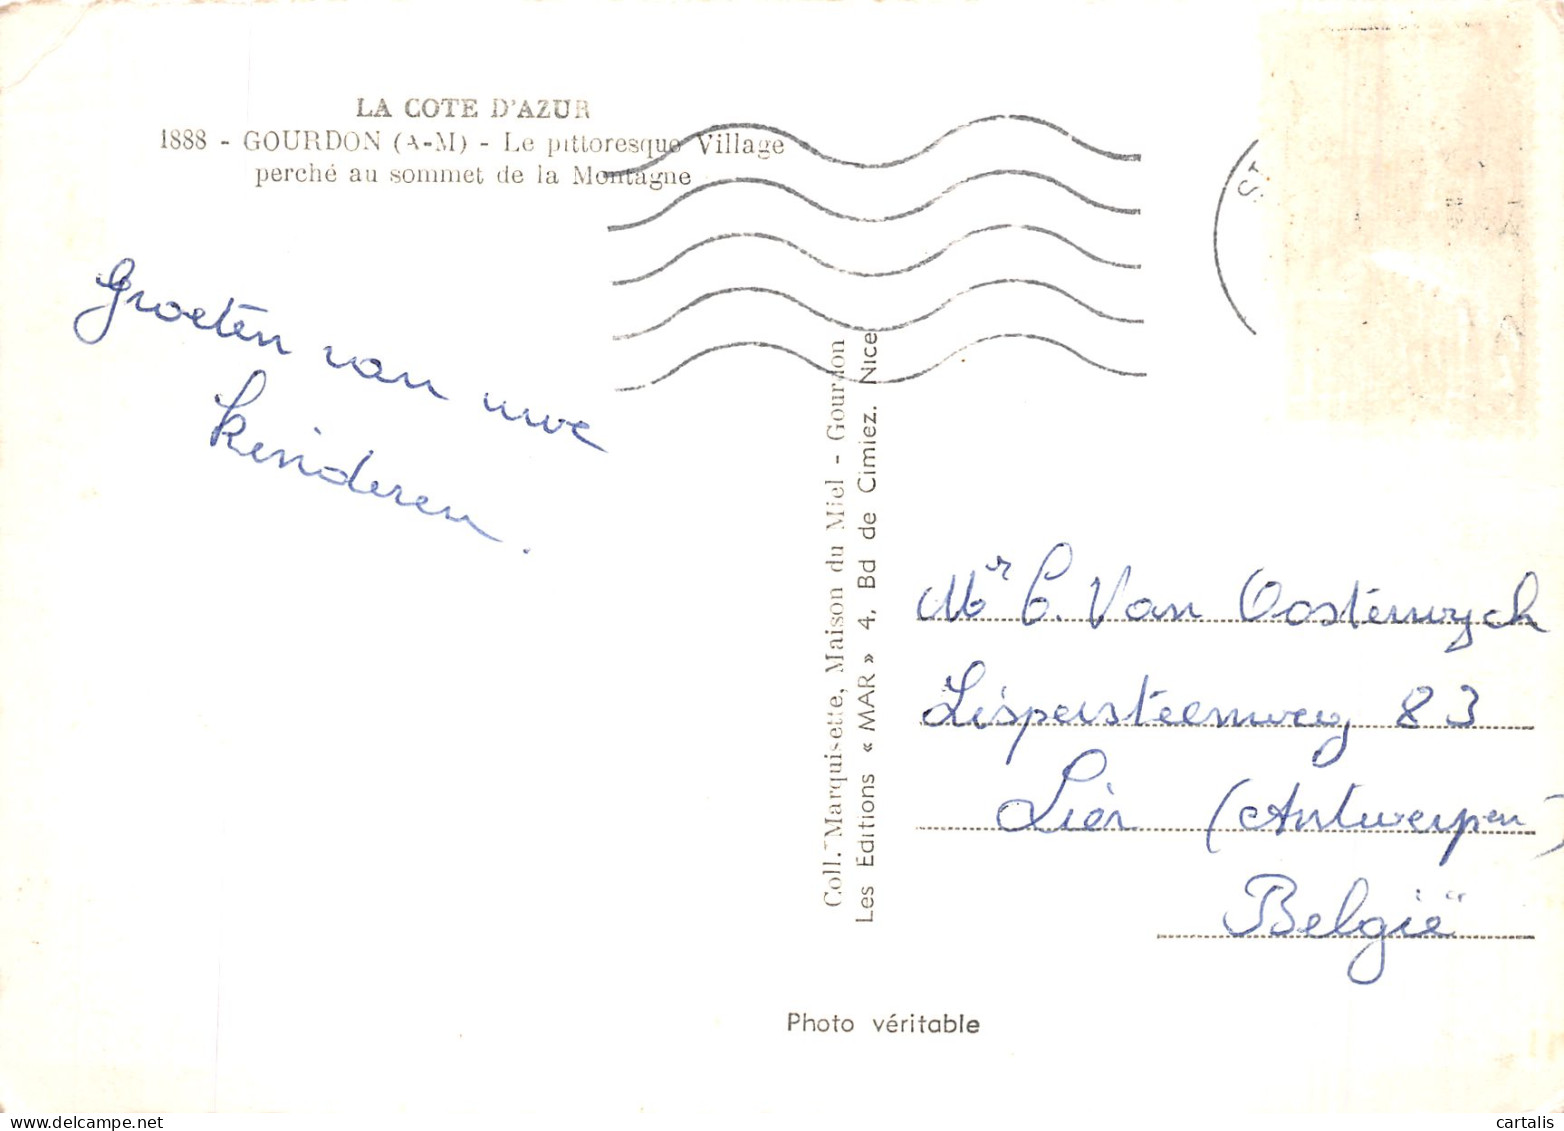 LA COTE D'AZUR
1888 - GOURDON (A-M) - Le pittoresque Village
perché au sommet de la Montagne
Groeten van uwe
kinderen.
Coll. Marquisette, Maison du Miel - Gourdon
Les Éditions « MAR » 4, Bd de Cimiez. Nice
Mr C. Van Oosterwyck
Lispersteenweg 83
Lier (Antwerpen)
België
Photo véritable
cartalis